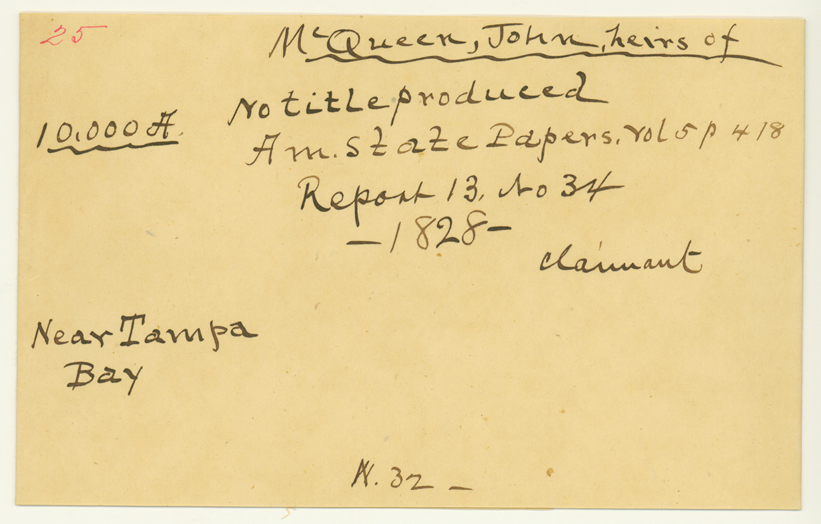 25
McQueen, John, heirs of
No title produced
10,000 A.
Am. State Papers, Vol 5 p 418
Report 13, No 34
— 1828 —
claimant
Near Tampa
Bay
N. 32 —